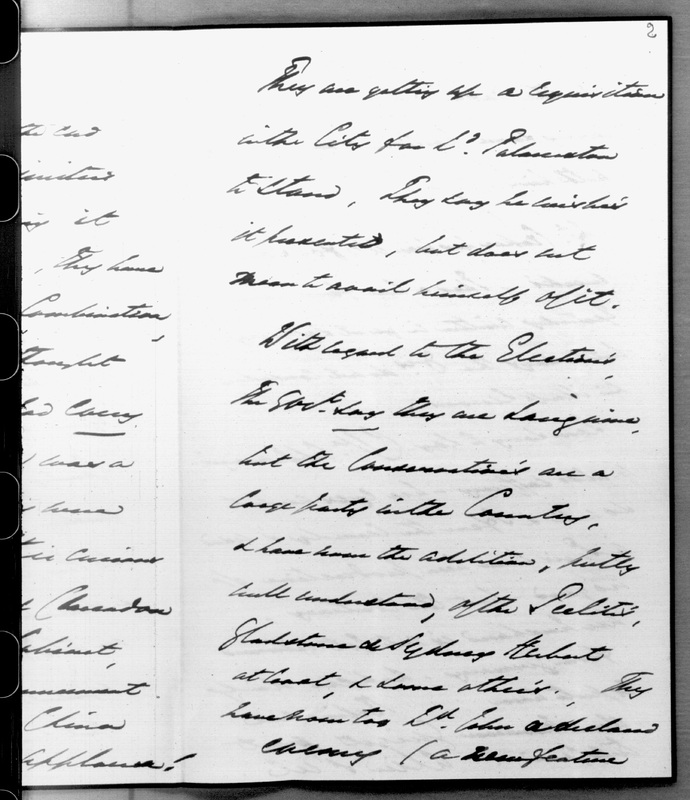 2
the end
it
, they have
Combination,
thought
carry
was a
were
curious
Clarendon
Cabinet,
China
applause!
They are getting up a requisition
in the City for Ld. Palmerston
to stand, They say he wishes
it presented, but does not
mean to avail himself of it.
With regard to the Elections,
the Govt. say they are sanguine,
but the Conservatives are a
large party in the Country,
& have now the addition, partly
well understood, of the Peelites,
Gladstone & Sydney Herbert
at least, & some others. They
have now too Ld. John a declared
enemy (a new feature